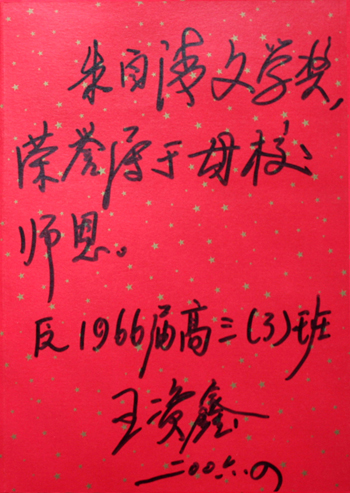 朱自清文学奖，
荣誉属于母校
师恩。
反1966届高三(3)班
王资鑫
二00六.四